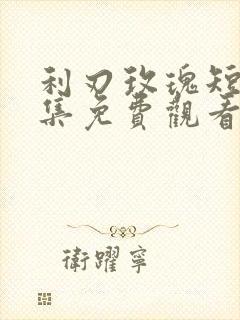 利刃玫瑰短
集免費觀看
衛躍寧